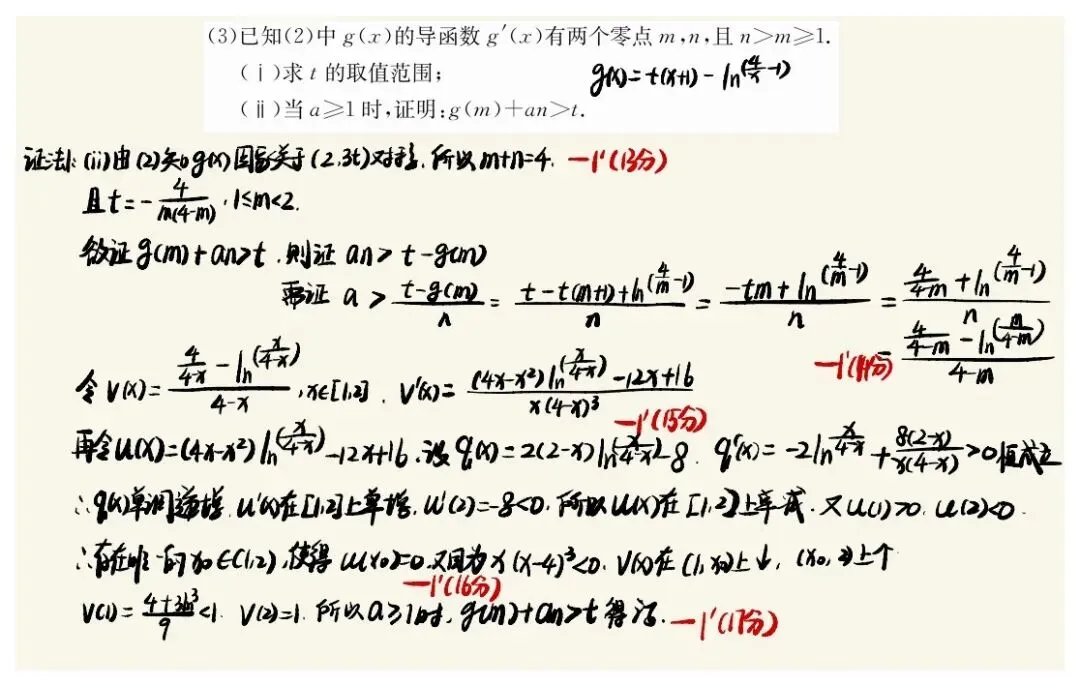 (3)已知(2)中 g(x)的导函数 g′(x)有两个零点 m,n,且 n>m≥1.
(ⅰ)求 t 的取值范围;
g(x)=t(x+1)-ln(4/x-1)
(ⅱ)当 a≥1 时,证明:g(m)+an>t.
证法1: (ii)由(2)知g(x)图象关于(2,3t)对称,所以m+n=4. —1'(13分)
且t=-4/(m(4-m)),1≤m<2.
欲证g(m)+an>t,则证 an>t-g(m)
需证 a > (t-g(m))/n = (t-t(m+1)+ln(4/m-1))/n = (-tm+ln(4/m-1))/n = (4/(4-m)+ln(4/m-1))/n
= (4/(4-m)-ln(m/(4-m)))/(4-m) —1'(14分)
令V(x)=(4/(4-x)-ln(x/(4-x)))/(4-x),x∈[1,2]. V'(x)=((4x-x²)ln(x/(4-x))-12x+16)/(x(4-x)³)
—1'(15分)
再令u(x)=(4x-x²)ln(x/(4-x))-12x+16.设q(x)=2(2-x)ln(x/(4-x))-8. q'(x)=-2ln x/(4-x)+8(2-x)/(x(4-x))>0恒成立
∴q(x)单调递增,u'(x)在[1,2]上单增,u'(2)=-8<0,所以u(x)在[1,2]上单减.又u(1)>0,u(2)<0.
∴存在唯一的x₀∈(1,2),使得u(x₀)=0,又因为x(x-4)³<0, V(x)在(1,x₀)上↓,(x₀,2)上个
—1'(16分)
V(1)=(4+3ln3)/9<1. V(2)=1.所以a≥1时,g(m)+an>t得证. —1'(17分)